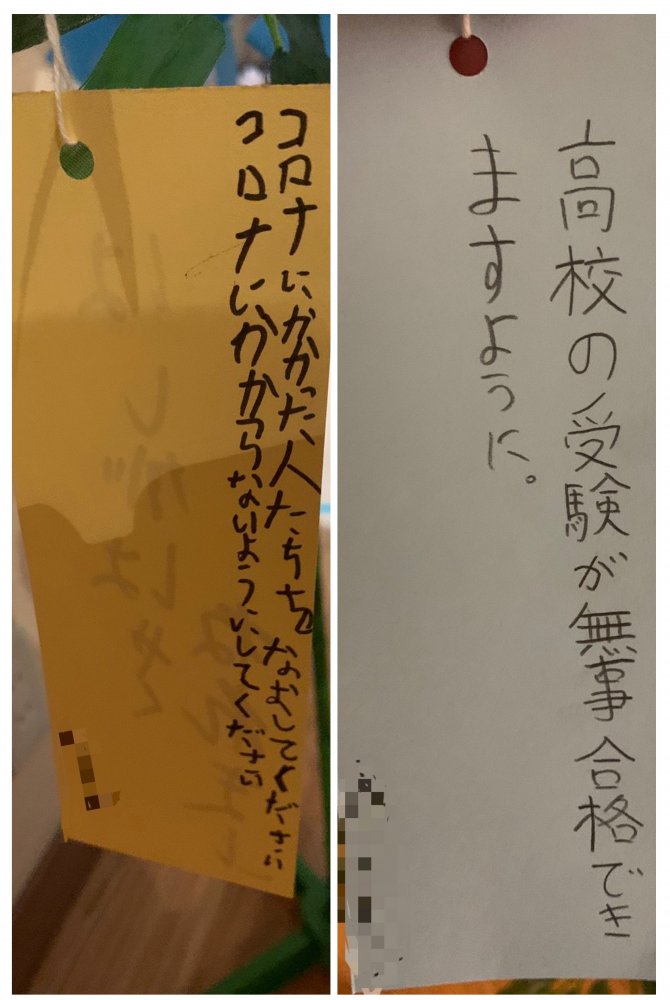 コロナにかかった人たちをなおしてください
コロナにかからないようにしてください
高校の受験が無事合格でき
ますように。